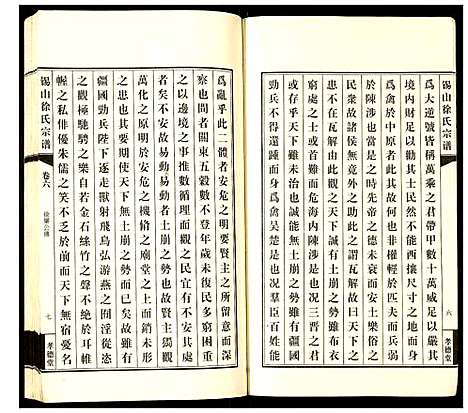 錫山徐氏宗譜
六
孝德堂
爲大逆號皆稱萬乘之君帶甲數十萬威足以嚴其
境內財足以勸其士民然不能西攘尺寸之地而身
爲禽於中原者此其故何也非權輕於匹夫而兵弱
於陳涉也當是之時先帝之德未衰而安土樂俗之
民衆故諸侯無竟外之助此之謂瓦解故曰天下之
患不在瓦解由此觀之天下誠有土崩之勢雖布衣
窮處之士或首難而危海內陳涉是也況三晉之君
或存乎天下雖未治也誠能無土崩之勢雖有彊國
勁兵不得還踵而身爲禽吳楚是也況羣臣百姓能
爲亂乎此二體者安危之明要賢主之所留意而深
察也間者關東五穀數不登年歲未復民多窮困重
之以邊境之事推數循理而觀之民宜有不安其處
者矣不安故易動易動者土崩之勢也故賢主獨觀
萬化之原明於安危之機脩之廟堂之上而銷未形
之患也其要期使天下無土崩之勢而已矣故雖有
彊國勁兵陛下逐走獸射飛鳥弘游燕之囿淫從恣
之觀極馳騁之樂自若金石絲竹之聲不絕於耳帷
幄之私俳優朱儒之笑不乏於前而天下無宿憂名
錫山徐氏宗譜
卷六
七
孝德堂